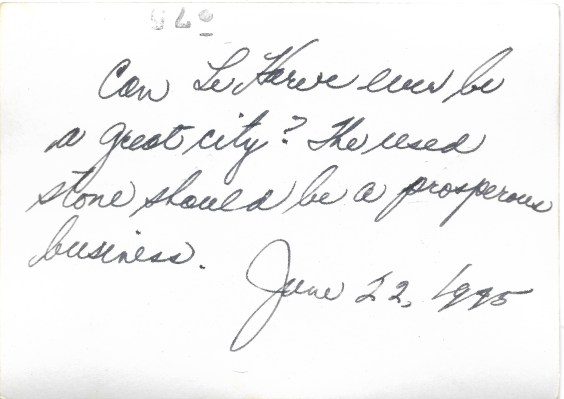 Can Le Harve ever be
a great city? The used
stone should be a prosperous
business.
June 22, 1995